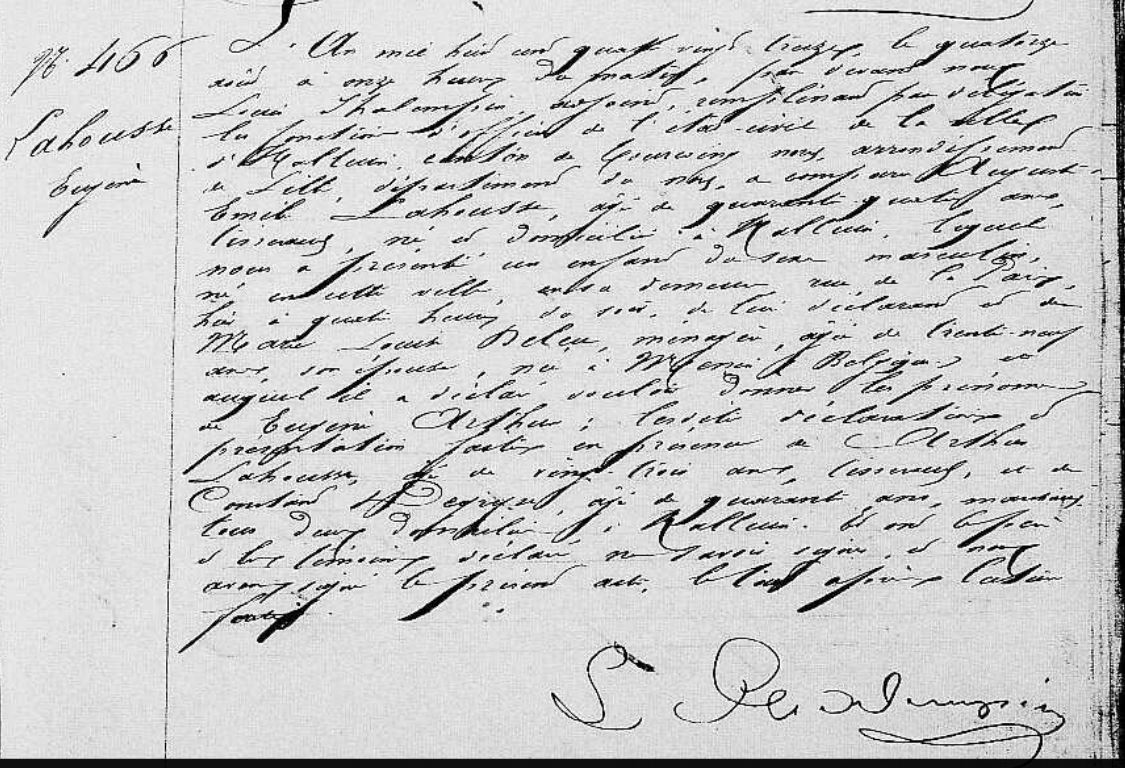 N°. 466
Lahousse
Eugène
L'An mil huit cent quatre vingt treize, le quatorze
août à onze heures du matin, par devant nous
Louis Thalampin, adjoint, remplissant par délégation
les fonctions d'officier de l'état-civil de la ville
d'Halluin, canton de Tourcoing nord, arrondissement
de Lille, département du nord, a comparu August-
Emile Lahousse, âgé de quarante quatre ans,
tisserand, né et domicilié à Halluin, lequel
nous a présenté un enfant du sexe masculin,
né en cette ville, en sa demeure, rue de la Paix,
hier à quatre heures du soir, de lui déclarant et de
Marie Louise Deleu, ménagère, âgée de trente-neuf
ans, son épouse, née à Menin, Belgique, et
auquel il a déclaré vouloir donner les prénoms
de Eugène Arthur; lesdites déclaration et
présentation faites en présence de Arthur
Lahousse, âgé de vingt trois ans, tisserand, et de
Constant Degryse, âgé de quarante ans,
tous deux domiciliés à Halluin. Et ont le père
et les témoins déclaré ne savoir signer, et nous
avons signé le présent acte, le tout après lecture
faite.
L